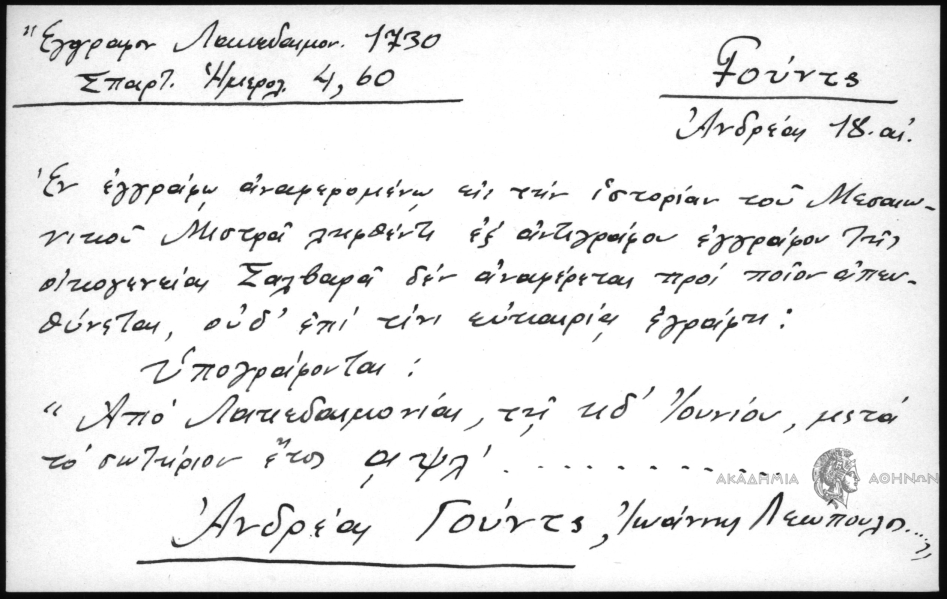 "Έγγραφον Λακεδαιμον. 1730
Σπαρτ. Ἡμερολ. 4, 60
Γούντς
Ἀνδρέας 18. αἰ.
Ἐν ἐγγράφῳ ἀναφερομένῳ εἰς τὴν ἱστορίαν τοῦ Μεσαιω-
νικοῦ Μιστρᾶ ληφθέντι ἐξ ἀντιγράφου ἐγγράφου τῆς
οἰκογενείας Σαλβαρᾶ δὲν ἀναφέρεται πρὸς ποῖον ἀπευ-
θύνεται, οὐδ' ἐπί τίνι εὐκαιρίᾳ ἐγράφη:
Ὑπογράφονται:
"Ἀπό Λακεδαιμονίας, τῇ κδ' Ἰουνίου, μετά
τό σωτήριον ἔτος ͵αψλ' . . . . . . . . . . . .
ΑΚΑΔΗΜΙΑ ΑΘΗΝΩΝ
Ἀνδρέας Γούντς, Ἰωάννης Λεωπουλος....,,